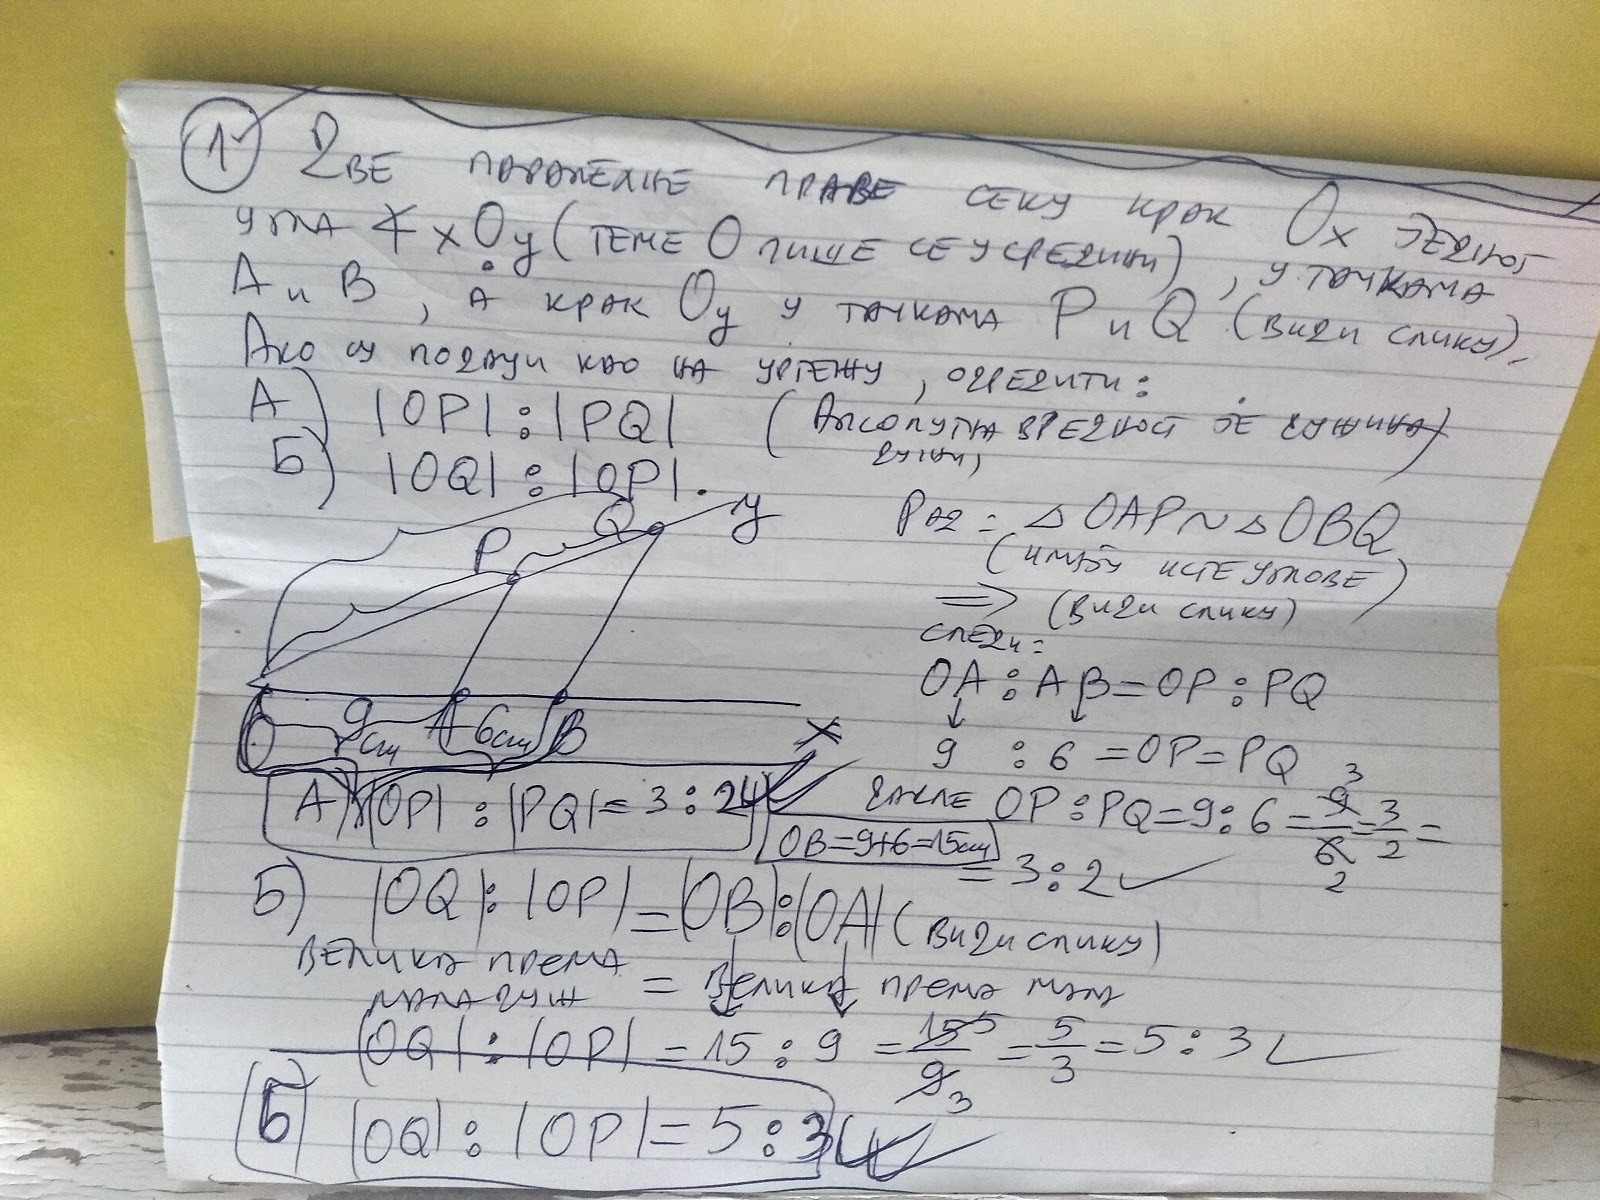 1 Две паралелне праве секу крак Ox једног
угла ∢ xOy (теме O пише се у средини), у тачкама
A и B, а крак Oy у тачкама P и Q (види слику).
Ако су подаци као на цртежу, одредити:
А) |OP| : |PQ| (Апсолутна вредност је дужина)
дужи,
Б) |OQ| : |OP|.
P Q y
Рад: △ OAP ~ △ OBQ
(имају исте углове)
⇒ (види слику)
следи:
OA : AB = OP : PQ
O 9cm A 6cm B x
9 : 6 = OP = PQ
А) |OP| : |PQ| = 3 : 2
дакле OP : PQ = 9 : 6 = 9/6 3 2 = 3/2 =
OB = 9+6 = 15cm
= 3 : 2 ✓
Б) |OQ| : |OP| = |OB| : |OA| (види слику)
велика према = велика према мала
мала дуж
|OQ| : |OP| = 15 : 9 = 15/9 5 3 = 5/3 = 5 : 3 ✓
Б |OQ| : |OP| = 5 : 3